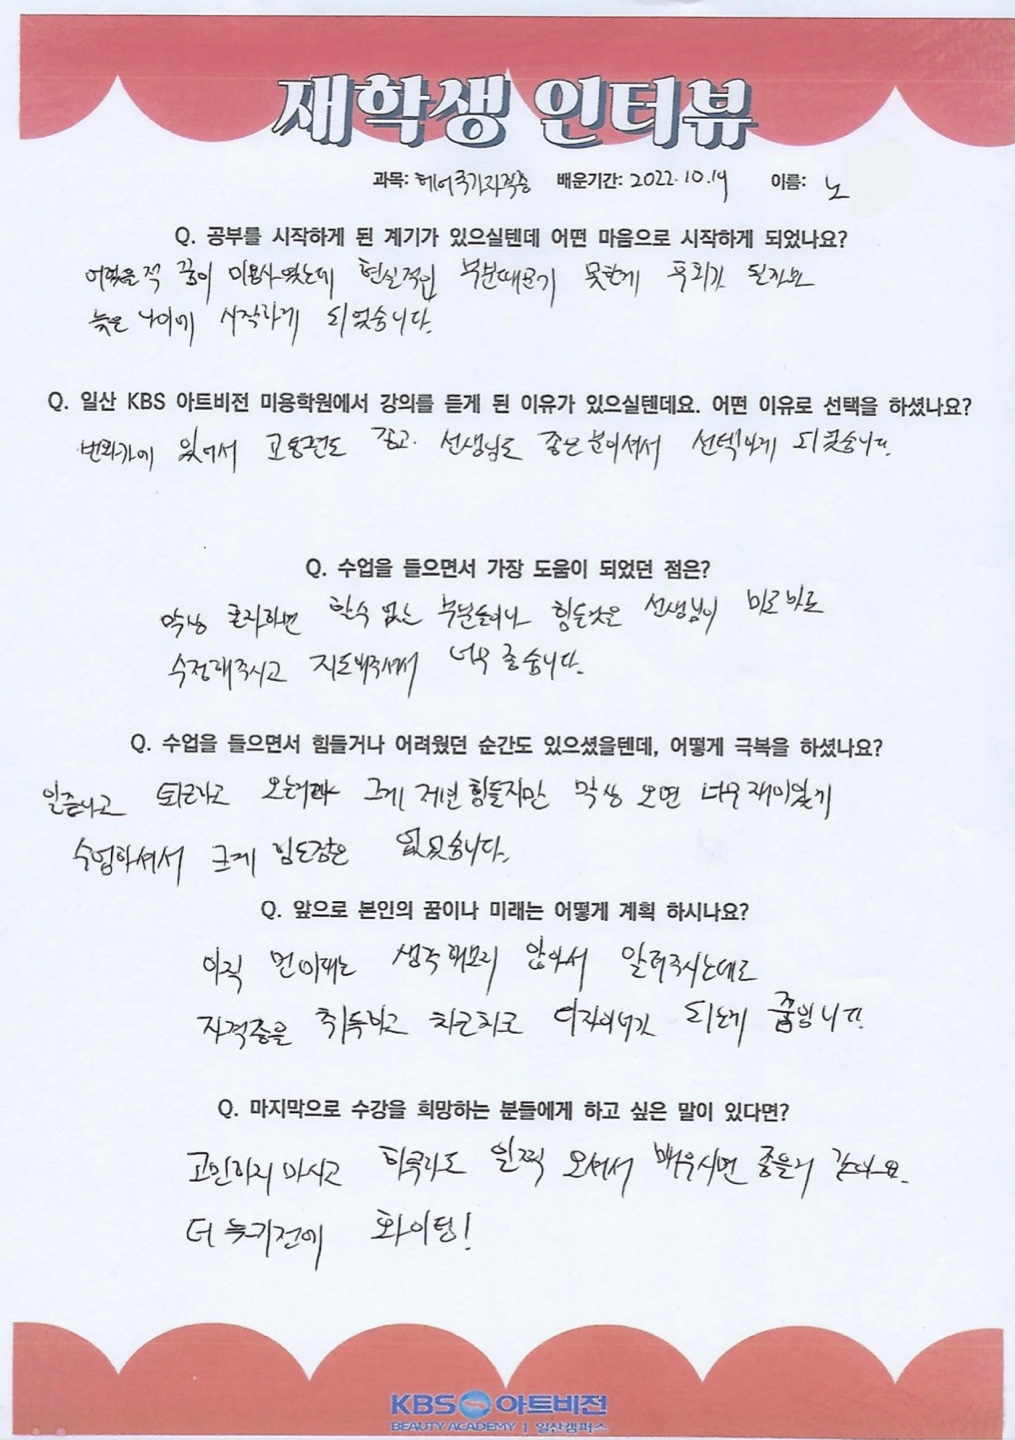 재학생 인터뷰
과목: 헤어국가자격증 배운기간: 2022.10.19 이름: 노
Q. 공부를 시작하게 된 계기가 있으실텐데 어떤 마음으로 시작하게 되었나요?
어렸을적 꿈이 미용사였는데 현실적인 부분때문에 못한게 후회가
늦은 나이에 시작하게 되었습니다.
Q. 일산 KBS 아트비전 미용학원에서 강의를 듣게 된 이유가 있으실텐데요. 어떤 이유로 선택을 하셨나요?
번화가에 있어서 교통편도 좋고 선생님도 좋은분이셔서 선택하게 되었습니다.
Q. 수업을 들으면서 가장 도움이 되었던 점은?
막상 혼자하면 할수 없는 부분들이나 힘든것은 선생님이 바로바로
수정해주시고 지도해주셔서 너무 좋습니다.
Q. 수업을 들으면서 힘들거나 어려웠던 순간도 있으셨을텐데, 어떻게 극복을 하셨나요?
퇴근하고 오는거라 그게 제일 힘들지만 막상 오면 너무 재미있게
수업하셔서 크게 힘든점은 없었습니다.
Q. 앞으로 본인의 꿈이나 미래는 어떻게 계획 하시나요?
아직 먼미래는 생각해보지 않아서 알려주시는데로
자격증을 취득하고 차근히 디자이너가 되는게 꿈입니다.
Q. 마지막으로 수강을 희망하는 분들에게 하고 싶은 말이 있다면?
고민하지 마시고 하루라도 일찍 오셔서 배우시면 좋을거 같아요.
더 늦기전에 화이팅!
KBS 아트비전
BEAUTY ACADEMY | 일산캠퍼스